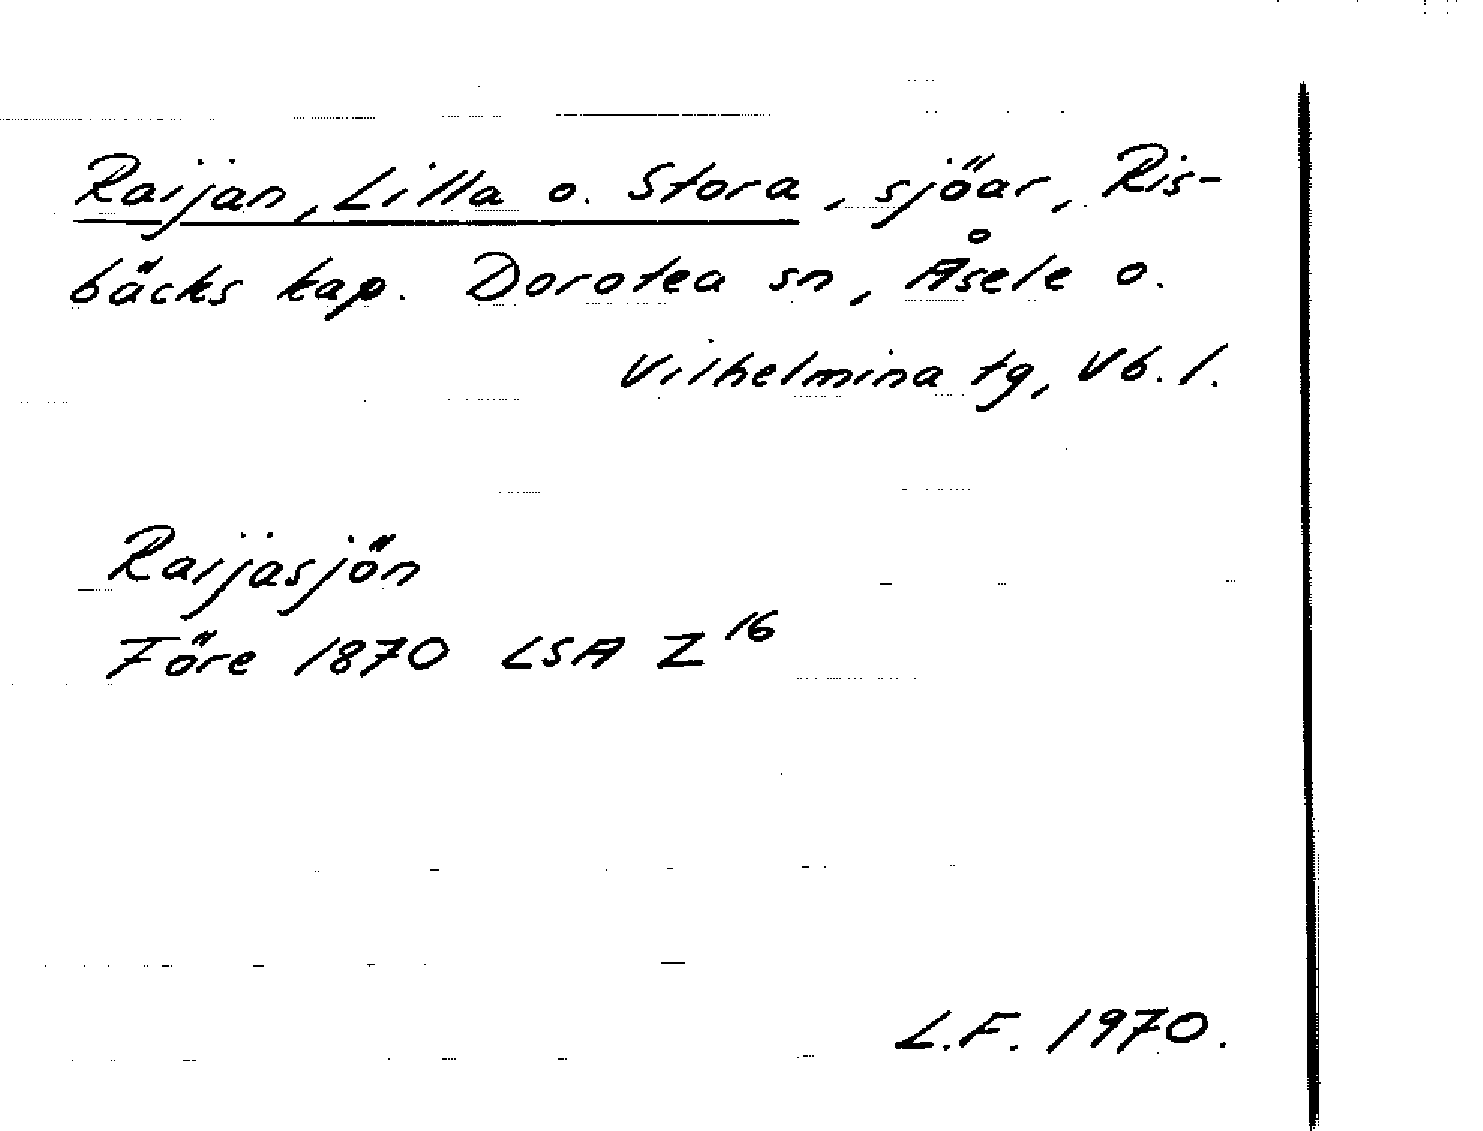 Raijan, Lilla o. Stora, sjöar, Ris-
bäcks kap. Dorotea sn, Åsele o.
Vilhelmina tg, Vb. l.
Raijasjön
Före 1870 LSA Z 16
L.F. 1970.